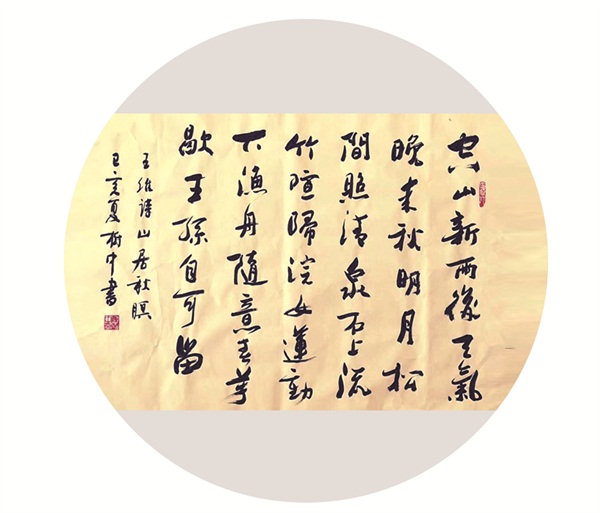 空山新雨後天氣
晚来秋明月松
間照清泉石上流
竹喧歸浣女蓮動
下漁舟隨意春芳
歇王孫自可留
王維詩山居秋暝
己亥夏樹中書